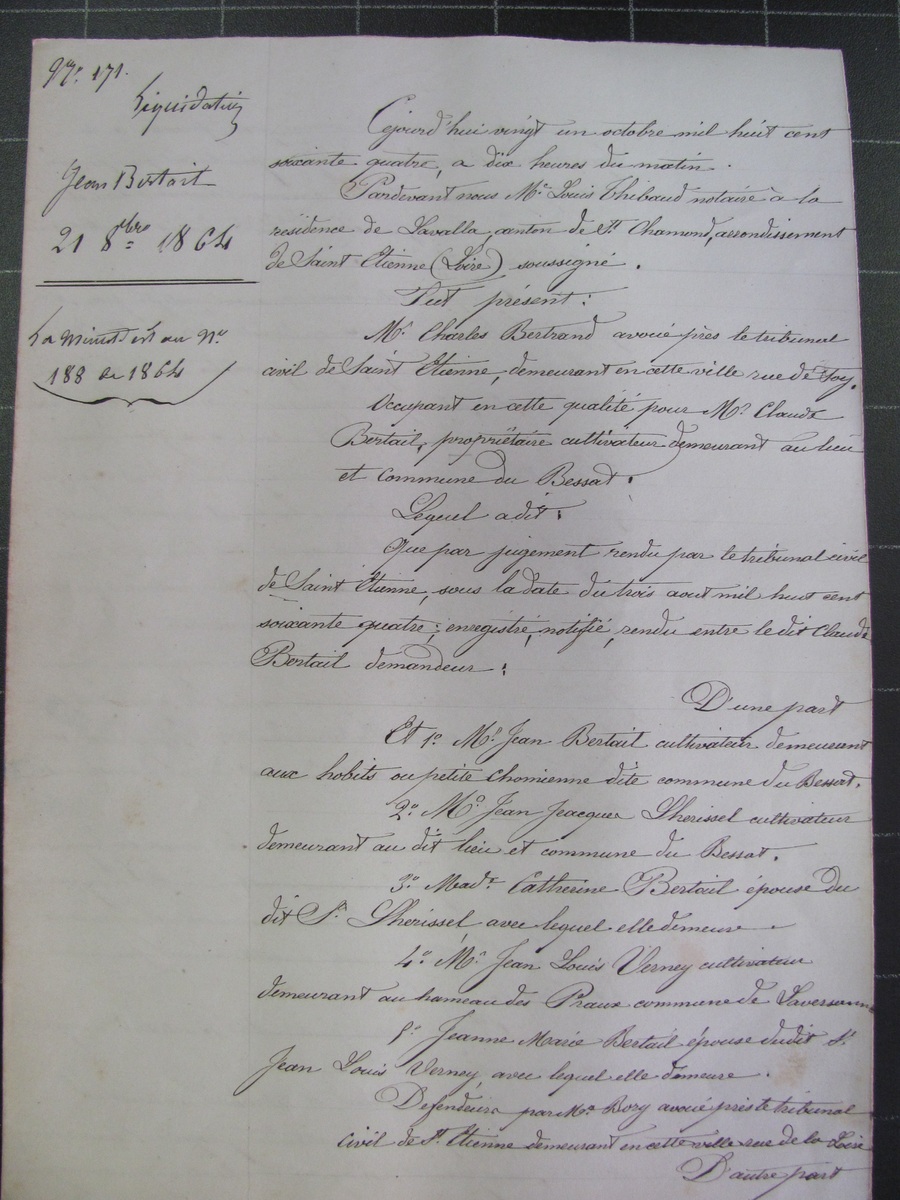 No. 171.
Liquidation
Jean Bertail
21 8bre 1864
La minute est au No.
188 de 1864
Cejourd'hui vingt un octobre mil huit cent
soixante quatre, a dix heures du matin.
Pardevant nous Me. Louis Thibaud notaire à la
résidence de Lavalla, canton de St. Chamond, arrondissement
de Saint Etienne (Loire), soussigné.
Fut présent:
Me. Charles Bertrand avoué près le tribunal
civil de Saint Etienne, demeurant en cette ville rue de Foy.
Occupant en cette qualité pour Mr. Claude
Bertail, propriétaire cultivateur demeurant au lieu
et commune du Bessat.
Lequel a dit.
Que par jugement rendu par le tribunal civil
de Saint Etienne, sous la date du trois aout mil huit cent
soixante quatre; enregistré, notifié, rendu entre le dit Claude
Bertail demandeur;
D'une part
Et 1o. Mr. Jean Bertail cultivateur demeurant
aux hobits ou petite Chomienne dite commune du Bessat.
2o. Mr. Jean Jeacques Lherissel cultivateur
demeurant au dit lieu et commune du Bessat.
3o. Made. Catherine Bertail épouse du
dit Sr. Lherissel avec lequel elle demeure.
4o. Mr. Jean Louis Verney cultivateur
demeurant au hameau des Praux commune de Laversanne
5o. Jeanne Marie Bertail épouse du dit S.
Jean Louis Verney avec lequel elle demeure.
Defendeurs par Me. Bory avoué près le tribunal
civil de St. Etienne demeurant en cette ville rue de la Loire
D'autre part